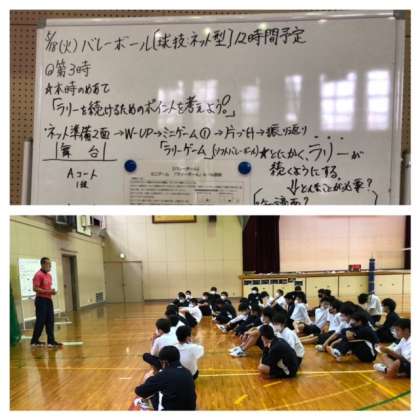 5/18(火) バレーボール[球技:ネット型] 12時間予定
◎第3時
☆本時のめあて
「ラリーを続けるためのポイントを考えよう!」
・ネット準備2面→W-UP→ミニゲーム①→片づけ→振り返り
舞台
「ラリーゲーム」(ソフトバレーボール) ☆とにかく、ラリーが
続くようにする。
Aコート
どんなことが必要?